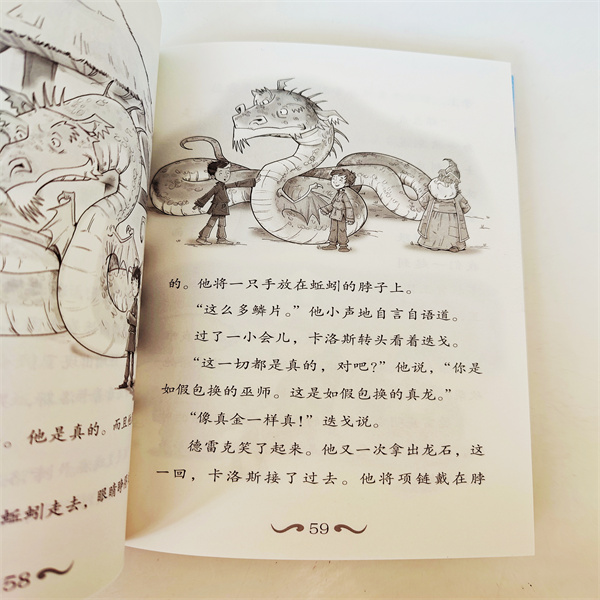 。他是真的。而且
蚯蚓走去，眼睛睁
58
的。他将一只手放在蚯蚓的脖子上。
“这么多鳞片。”他小声地自言自语道。
过了一小会儿，卡洛斯转头看着迭戈。
“这一切都是真的，对吧？”他说，“你是
如假包换的巫师。这是如假包换的真龙。”
“像真金一样真！”迭戈说。
德雷克笑了起来。他又一次拿出龙石，这
一回，卡洛斯接了过去。他将项链戴在脖
59